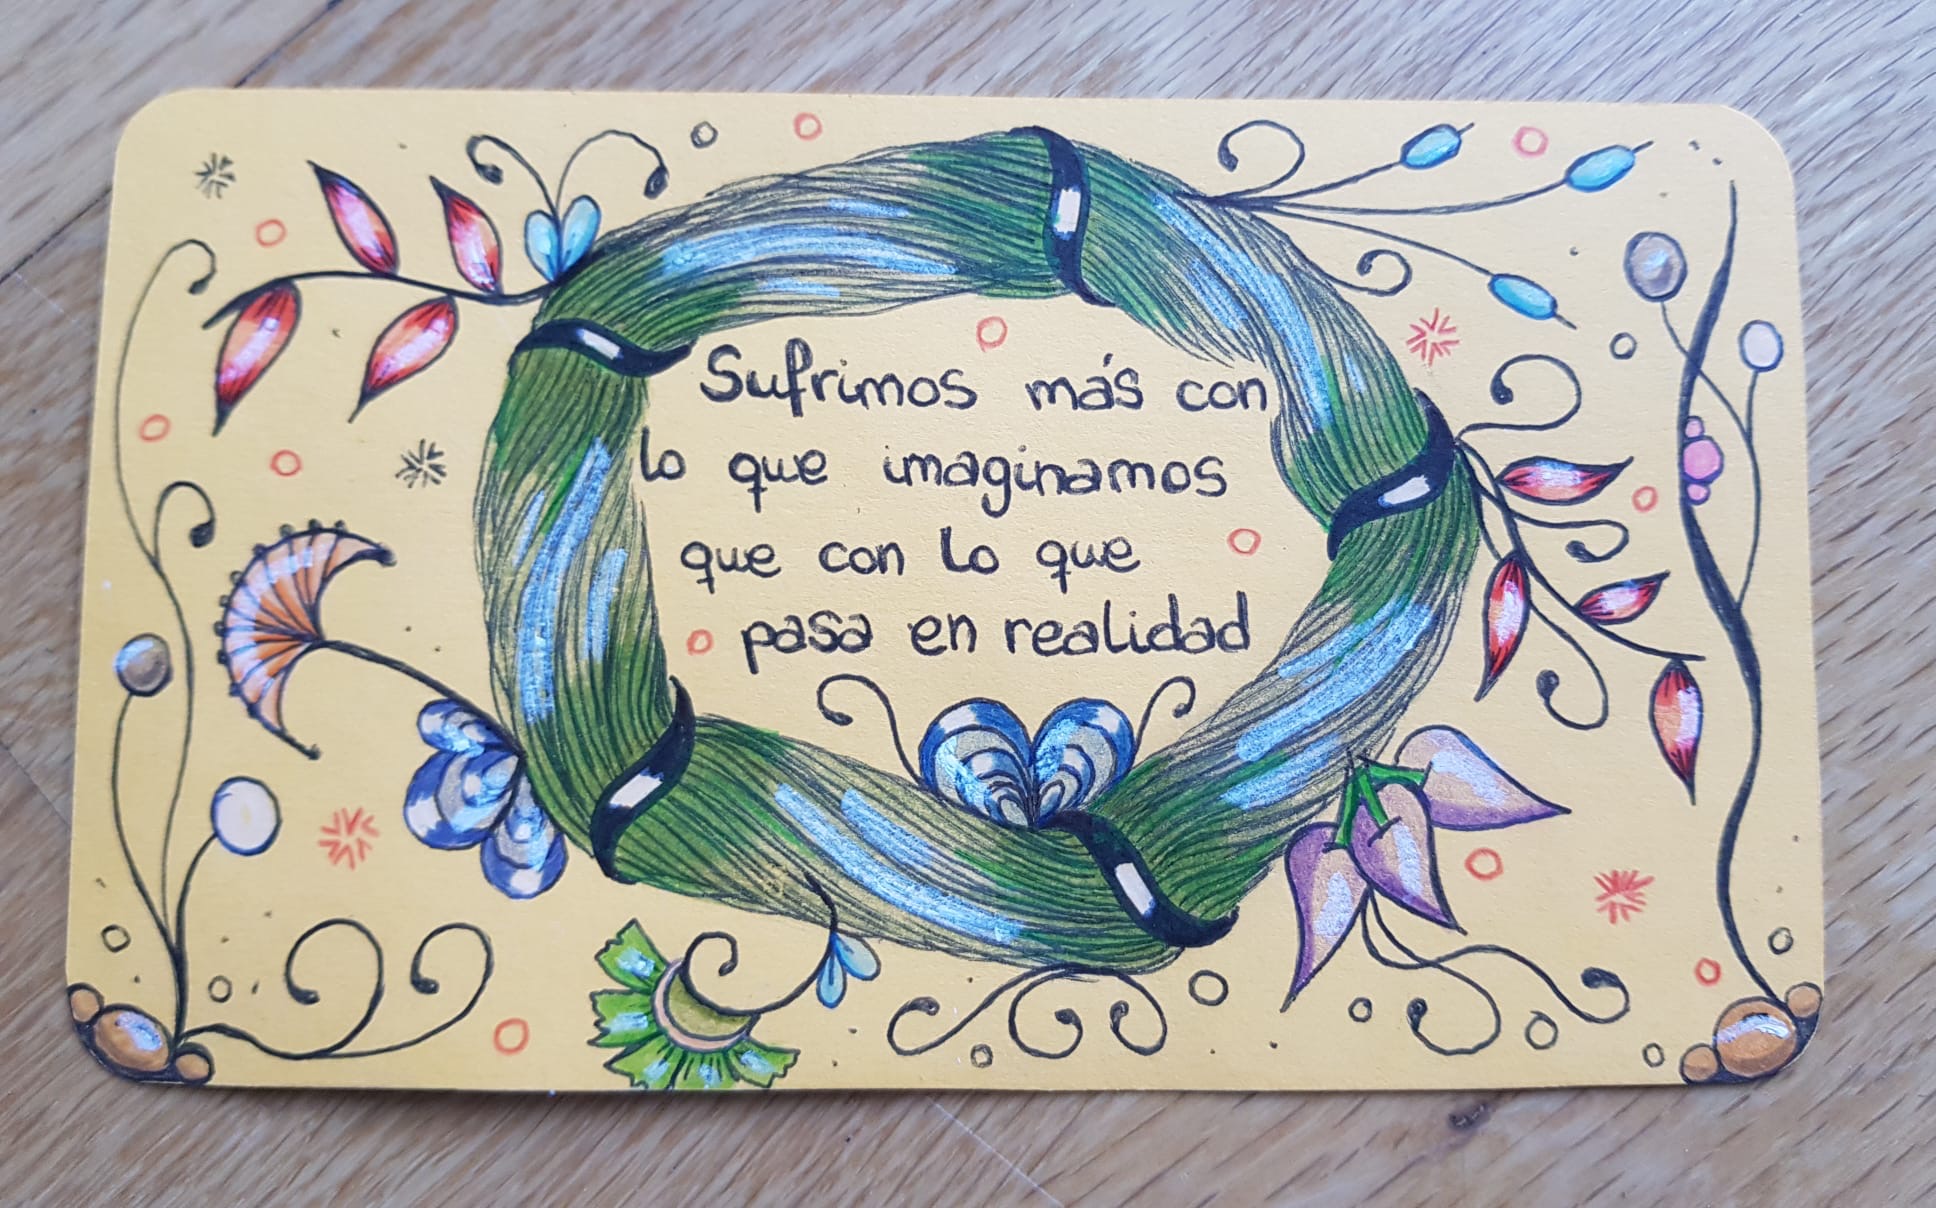 Sufrimos más con
lo que imaginamos
que con lo que
pasa en realidad